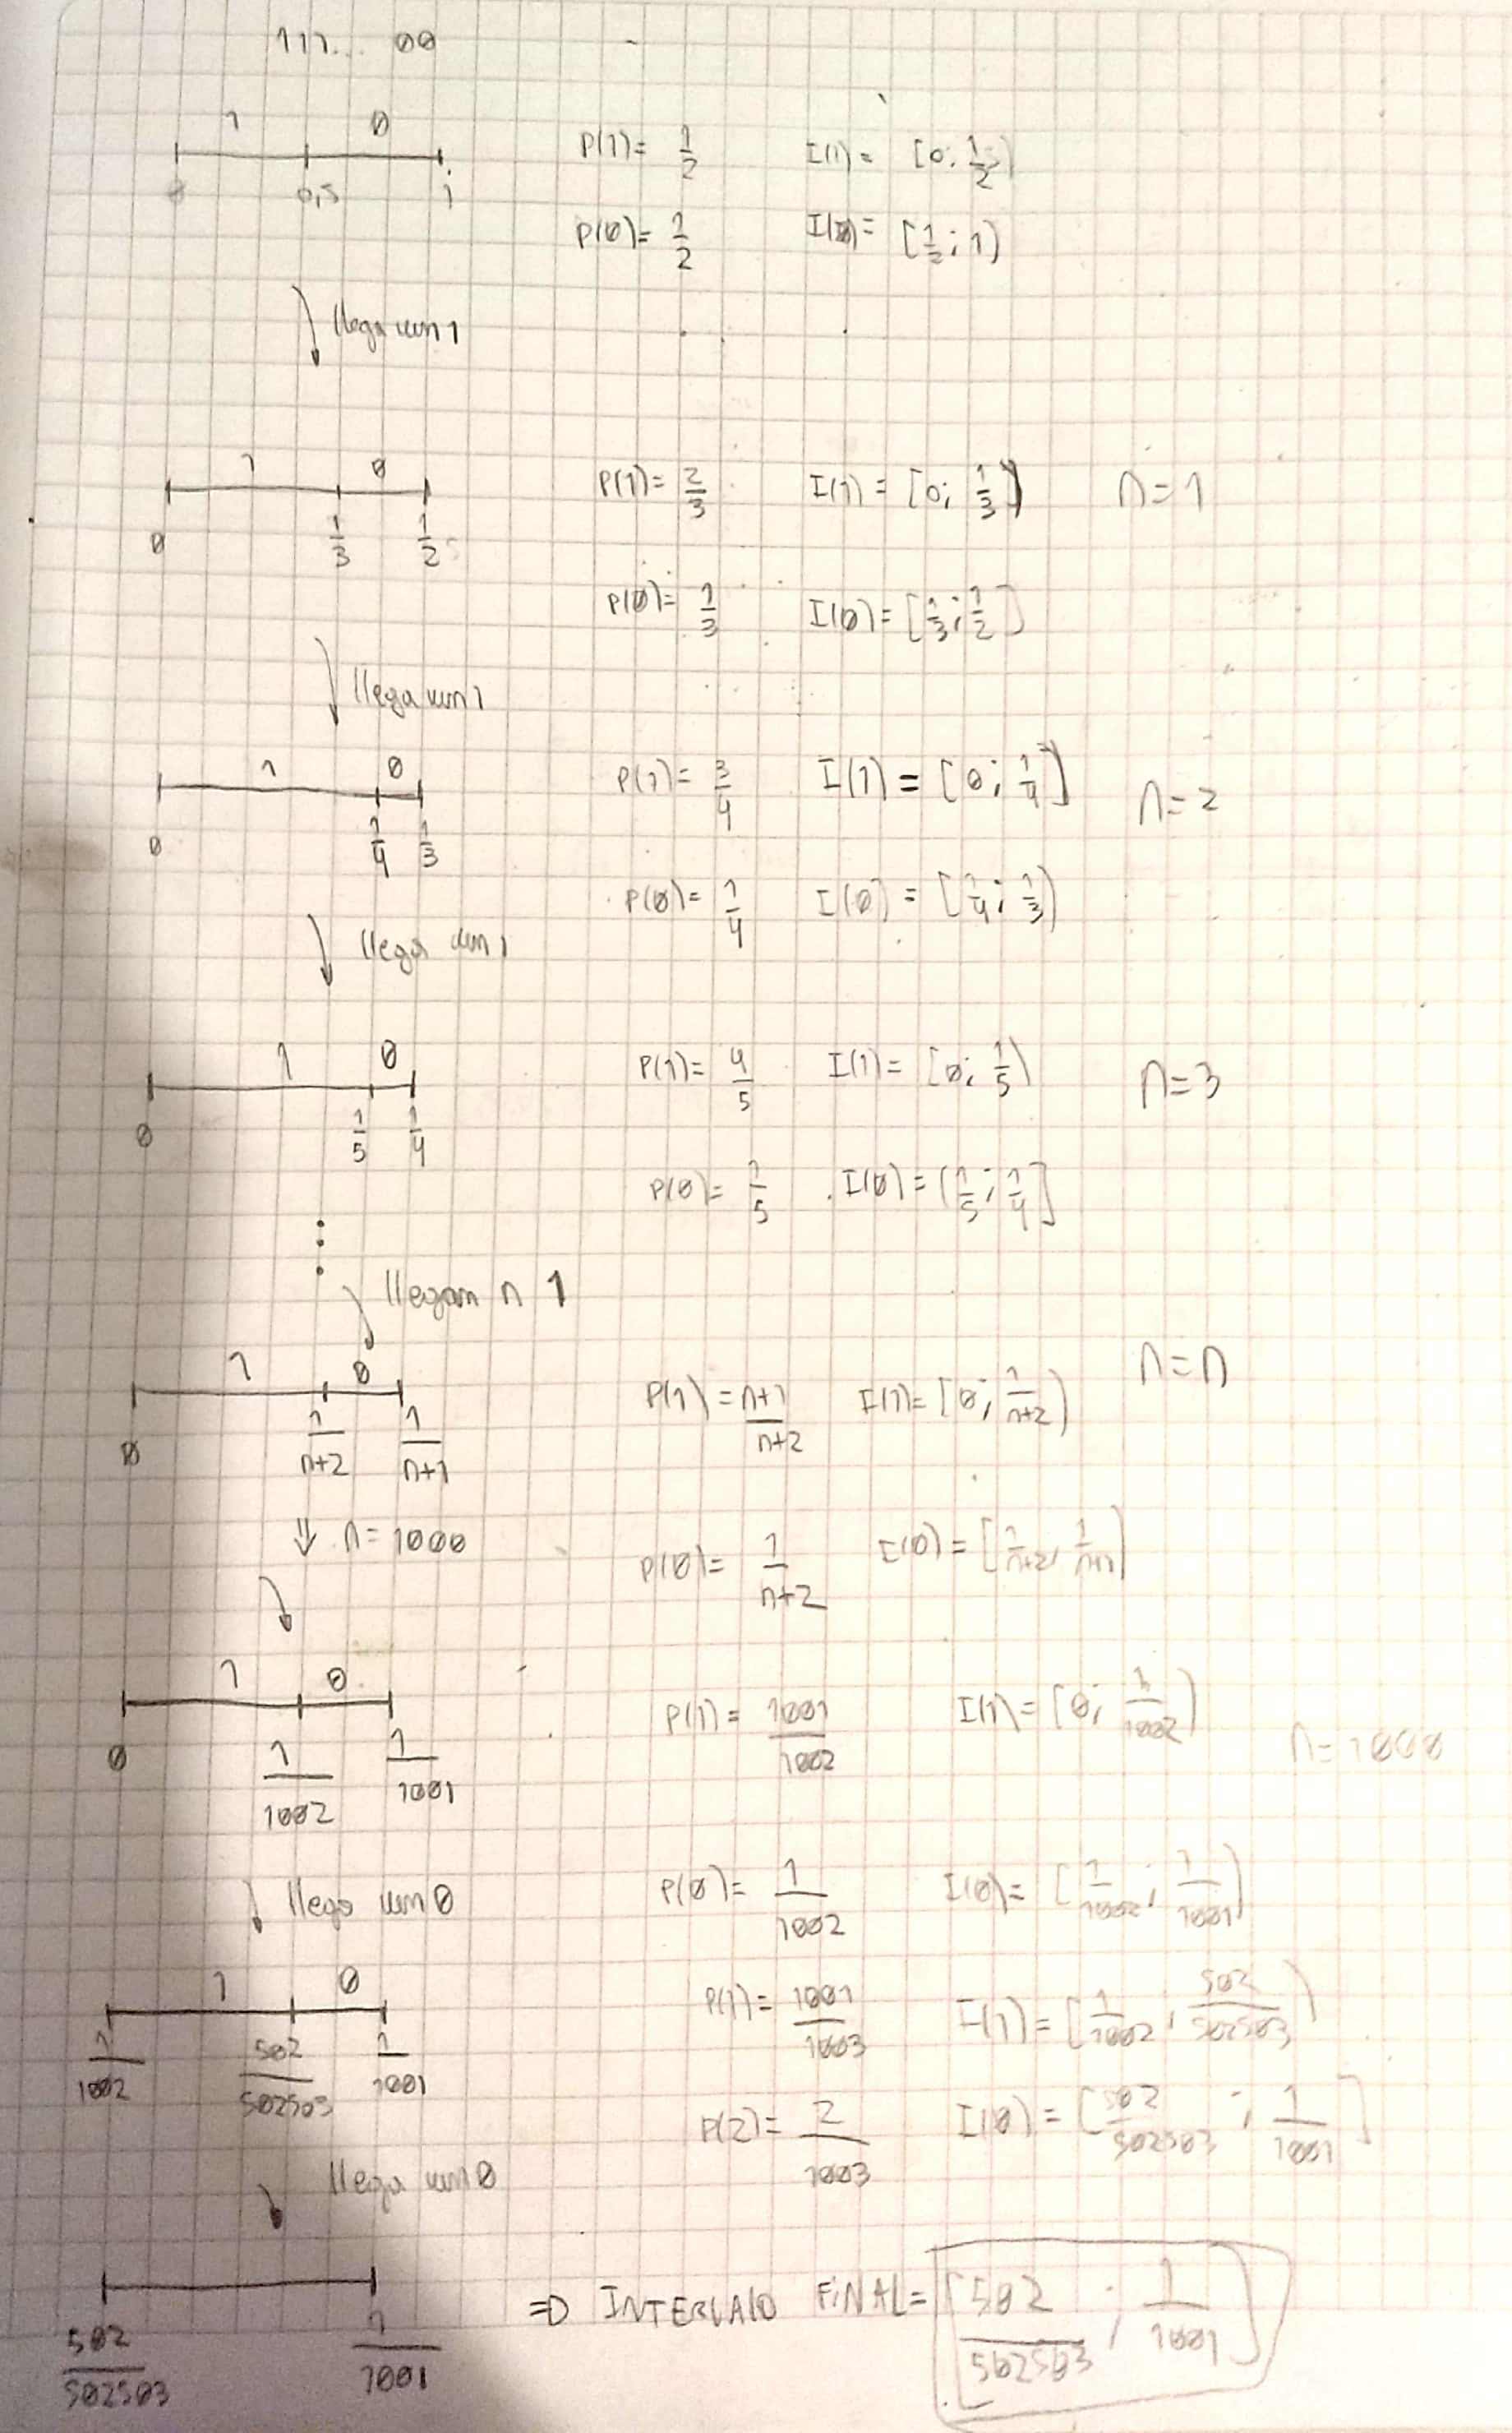 111... 00
1 0
0 0,5 1
P(1)= 1/2 I(1)= [0; 1/2)
P(0)= 1/2 I(0)= [1/2; 1)
llega un 1
1 0
0 1/3 1/2
P(1)= 2/3 I(1)= [0; 1/3) n=1
P(0)= 1/3 I(0)= [1/3; 1/2]
llega un 1
1 0
0 1/4 1/3
P(1)= 3/4 I(1) = [0; 1/4] n=2
P(0)= 1/4 I(0) = [1/4; 1/3)
llega un 1
1 0
0 1/5 1/4
P(1)= 4/5 I(1)= [0; 1/5) n=3
P(0)= 1/5 I(0)= [1/5; 1/4]
llegan n 1
1 0
0 1/n+2 1/n+1
P(1) = n+1/n+2 I(1)= [0; 1/n+2) n=n
⇓ n= 1000
P(0)= 1/n+2 I(0)= [1/n+2, 1/n+1)
1 0
0 1/1002 1/1001
P(1)= 1001/1002 I(1)= [0; 1/1002) n=1000
P(0)= 1/1002 I(0)= [1/1002; 1/1001)
llega un 0
1 0
1/1002 502/502503 1/1001
P(1)= 1001/1003 I(1)= [1/1002, 502/502503)
P(2)= 2/1003 I(0)= [502/502503; 1/1001]
llega un 0
502/502503 1/1001
=D INTERVALO FINAL= [502/502503; 1/1001)